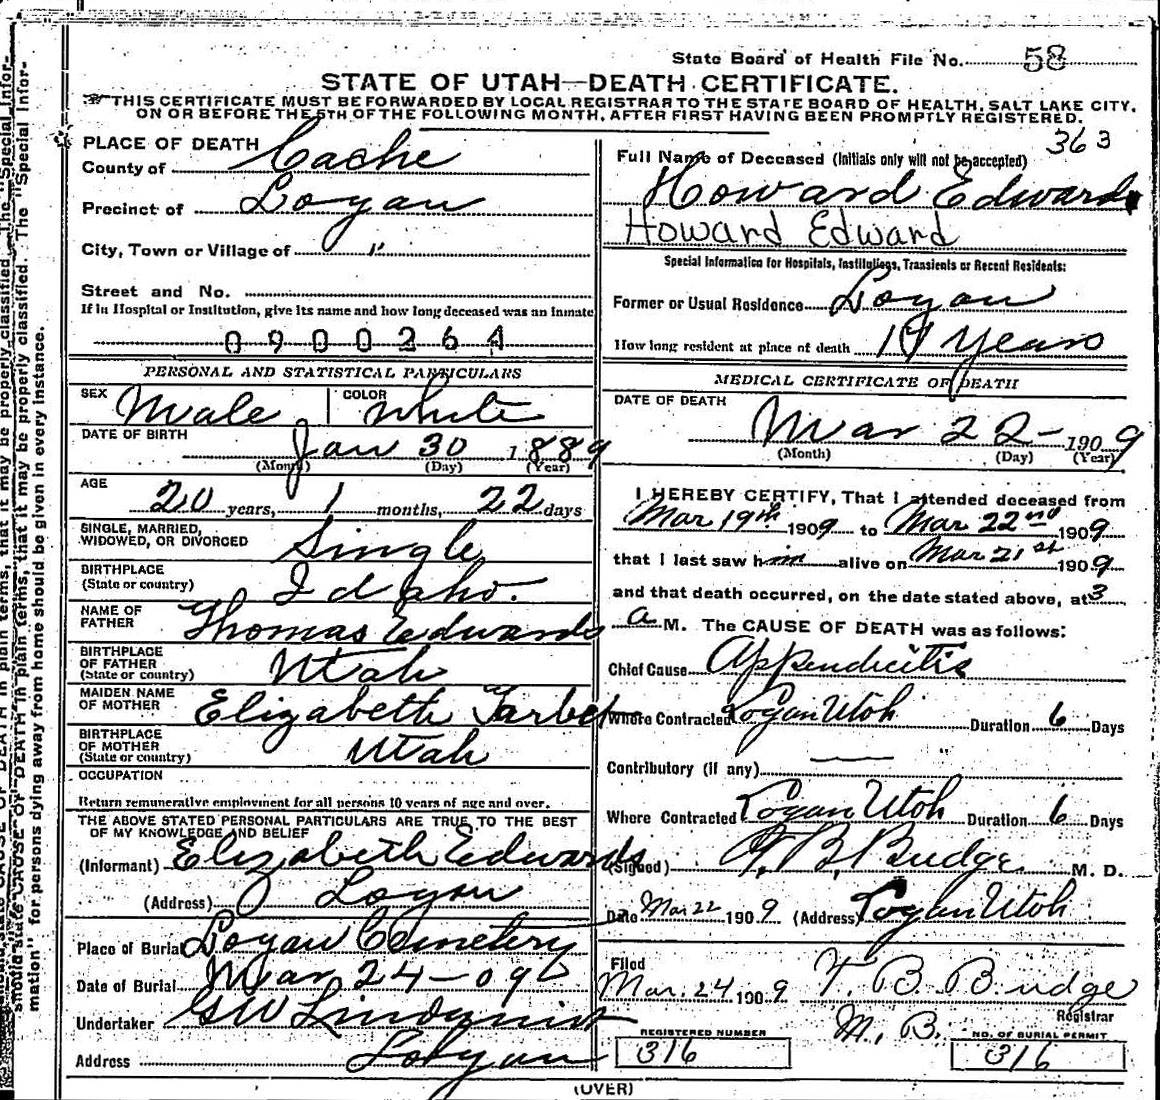 State Board of Health File No. 58
STATE OF UTAH—DEATH CERTIFICATE.
THIS CERTIFICATE MUST BE FORWARDED BY LOCAL REGISTRAR TO THE STATE BOARD OF HEALTH, SALT LAKE CITY,
ON OR BEFORE THE 5TH OF THE FOLLOWING MONTH, AFTER FIRST HAVING BEEN PROMPTLY REGISTERED.
363
PLACE OF DEATH
County of Cache
Precinct of Logan
City, Town or Village of "
Street and No.
If in Hospital or Institution, give its name and how long deceased was an inmate
0900264
PERSONAL AND STATISTICAL PARTICULARS
SEX Male COLOR White
DATE OF BIRTH Jan 30 1889
(Month) (Day) (Year)
AGE 20 years, 1 months, 22 days
SINGLE, MARRIED,
WIDOWED, OR DIVORCED Single
BIRTHPLACE
(State or country) Idaho.
NAME OF
FATHER Thomas Edwards
BIRTHPLACE
OF FATHER
(State or country) Utah
MAIDEN NAME
OF MOTHER Elizabeth Tarbet
BIRTHPLACE
OF MOTHER
(State or country) Utah
OCCUPATION
Return remunerative employment for all persons 10 years of age and over.
THE ABOVE STATED PERSONAL PARTICULARS ARE TRUE TO THE BEST
OF MY KNOWLEDGE AND BELIEF
(Informant) Elizabeth Edwards
(Address) Logan
Place of Burial Logan Cemetery
Date of Burial Mar 24-09
Undertaker GW Lindquist
Address Logan
Full Name of Deceased (Initials only will not be accepted)
Howard Edward
Howard Edward
Special Information for Hospitals, Institutions, Transients or Recent Residents:
Former or Usual Residence Logan
How long resident at place of death Years
MEDICAL CERTIFICATE OF DEATH
DATE OF DEATH
Mar 22- 1909
(Month) (Day) (Year)
I HEREBY CERTIFY, That I attended deceased from
Mar 19th 1909 to Mar 22nd 1909
that I last saw him alive on Mar 21st 1909
and that death occurred, on the date stated above, at 3
a M. The CAUSE OF DEATH was as follows:
Chief Cause Appendicitis
Where Contracted Logan Utah Duration 6 Days
Contributory (if any) —
Where Contracted Logan Utah Duration 6 Days
(Signed) T. B. Budge M. D.
Date Mar 22 1909 (Address) Logan Utah
Filed
Mar. 24 1909 T. B. Budge
Registrar
M. B.
REGISTERED NUMBER
316
NO. OF BURIAL PERMIT
316
(OVER)